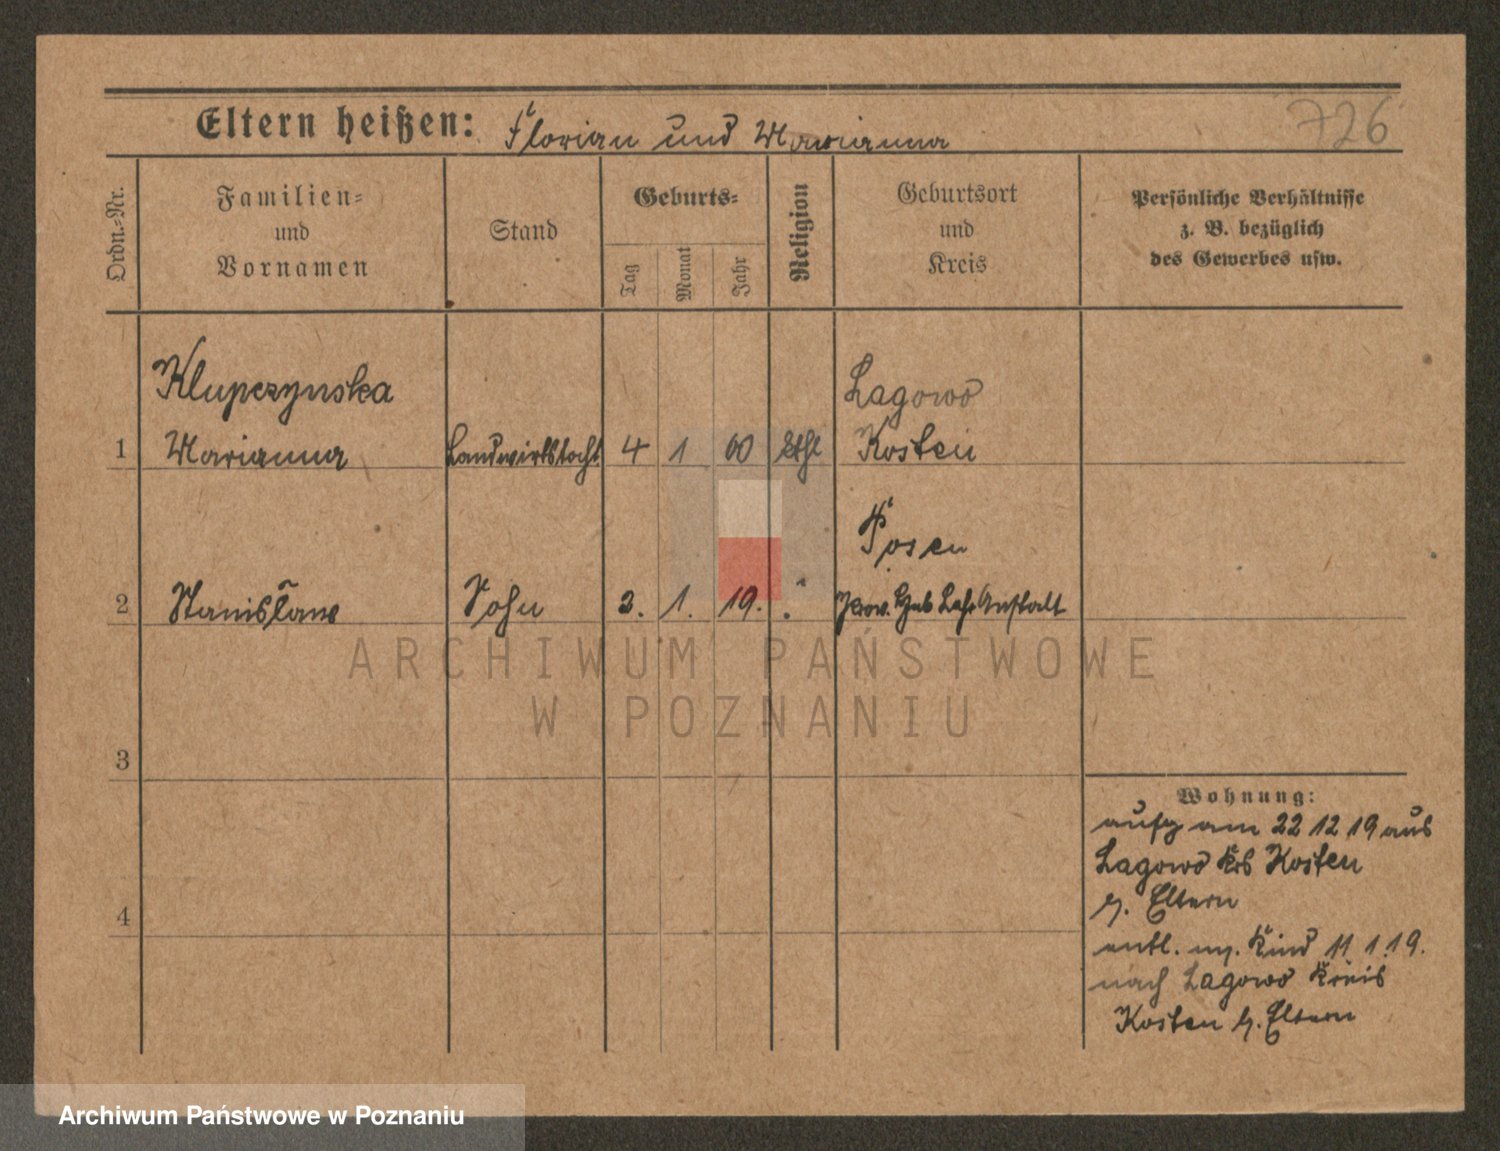 Eltern heißen: Florian und Marianna
726
Ordn.-Nr.
Familien-
und
Vornamen
Stand
Geburts-
Tag
Monat
Jahr
Religion
Geburtsort
und
Kreis
Persönliche Verhältnisse
z. B. bezüglich
des Gewerbes usw.
Klupczynska
Lagowo
1 Marianna Landwirtstocht 4 1 00 kthl Kosten
Posen
2 Stanisław Sohn 2. 1. 19. Prov. Heb Lehr Anstalt
ARCHIWUM PAŃSTWOWE
W POZNANIU
3
4
Wohnung:
aufg am 22 12 19 aus
Lagowo Krs Kosten
z. Eltern
entl. m. Kind 11 1.19.
nach Lagowo Kreis
Kosten z. Eltern
Archiwum Państwowe w Poznaniu